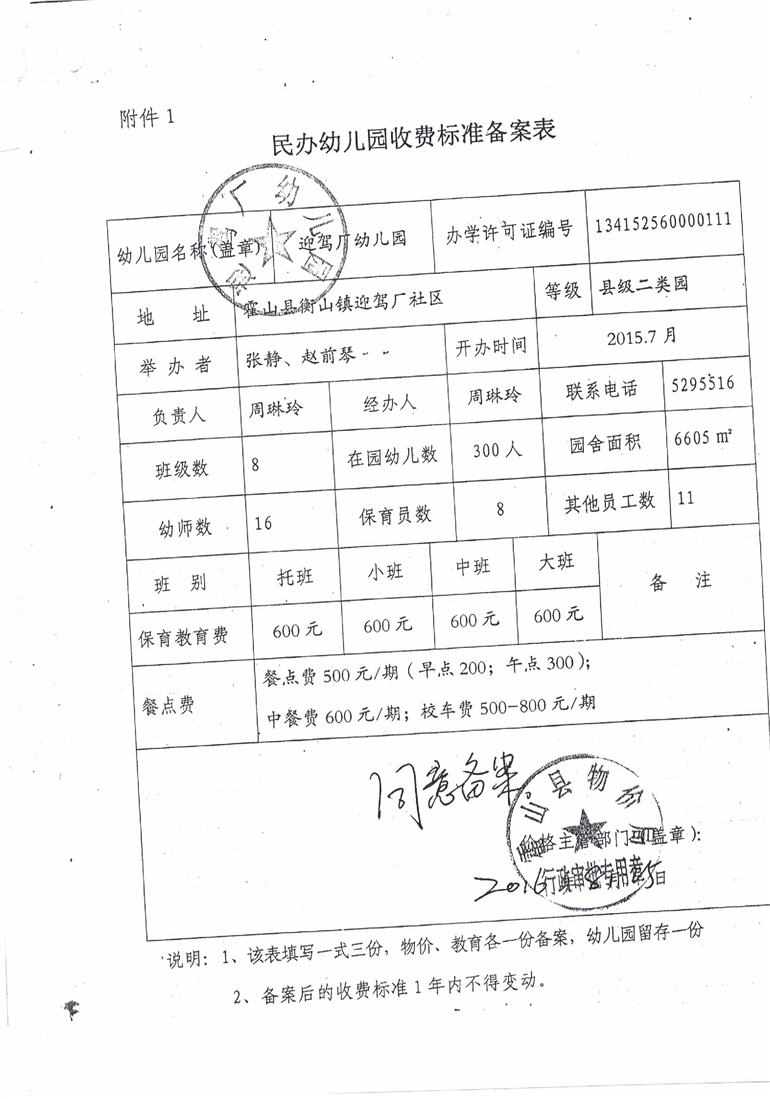 附件 1
民办幼儿园收费标准备案表
幼儿园名称(盖章) 迎驾厂幼儿园 办学许可证编号 134152560000111
迎驾厂幼儿园
地 址 霍山县衡山镇迎驾厂社区 等级 县级二类园
举 办 者 张静、赵前琴 开办时间 2015.7 月
负责人 周琳玲 经办人 周琳玲 联系电话 5295516
班级数 8 在园幼儿数 300 人 园舍面积 6605 ㎡
幼师数 16 保育员数 8 其他员工数 11
班 别 托班 小班 中班 大班 备 注
保育教育费 600 元 600 元 600 元 600 元
餐点费 餐点费 500 元/期（早点 200；午点 300）；
中餐费 600 元/期；校车费 500-800 元/期
同意备案
霍山县物价局
价格主管部门（盖章）：
行政审批专用章
2016 日
说明：1、该表填写一式三份，物价、教育各一份备案，幼儿园留存一份
2、备案后的收费标准 1 年内不得变动。